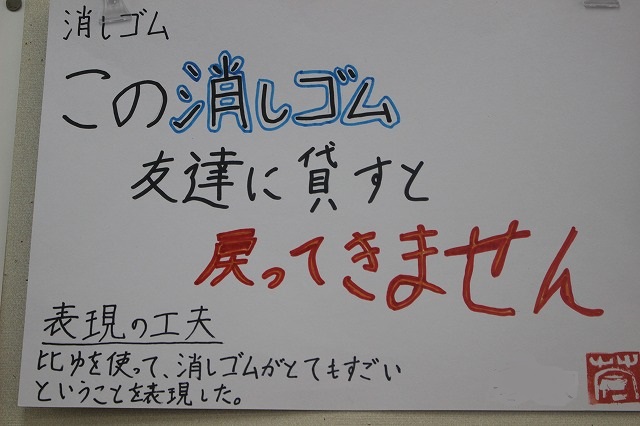 消しゴム
この消しゴム
友達に貸すと
戻ってきません
表現の工夫
比ゆを使って、消しゴムがとてもすごい
ということを表現した。